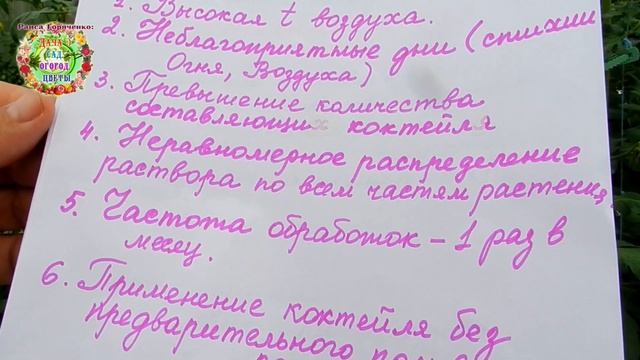 Раиса Горяченко:
ДАЧА
САД
ОГОРОД
ЦВЕТЫ
1. Высокая t воздуха.
2. Неблагоприятные дни (стихии
Огня, Воздуха)
3. Превышение количества
составляющих коктейля
4. Неравномерное распределение
раствора по всем частям растения
5. Частота обработок – 1 раз в
месяц.
6. Применение коктейля без
предварительного